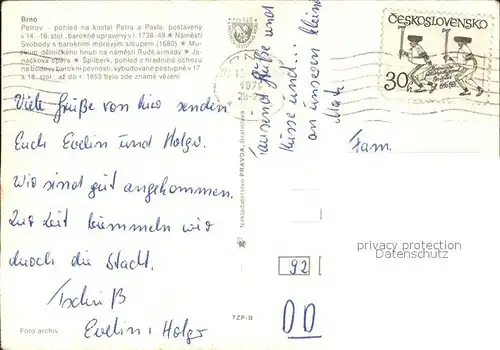 Brno
Petrov - pohled na kostel Petra a Pavla, postavený
v 14.-16. stol., barokně upravený v l. 1738-49. ★ Náměstí
Svobody s barokním mórovým sloupem (1680) ★ Mu-
zeum dělnického hnutí na náměstí Rudé armády ★ Ja-
náčkova opera ★ Špilberk, pohled z hradního ochozu
na budovy barokní pevnosti, vybudované postupně v 17
a 18. stol., až do r. 1853 bylo zde známé vězení
Viele Grüße von hier senden
Euch Evelin und Holger.
Wir sind gut angekommen.
Zur Zeit bummeln wir
durch die Stadt.
Tschüß
Evelin + Holger
Foto archív
Nakladatelstvo PRAVDA, Bratislava
TZP-B
Tausend Grüße und
Küsse und...
an unseren kleinen
ČESKOSLOVENSKO
30
Fam.
privacy protection
Datenschutz
92
DD